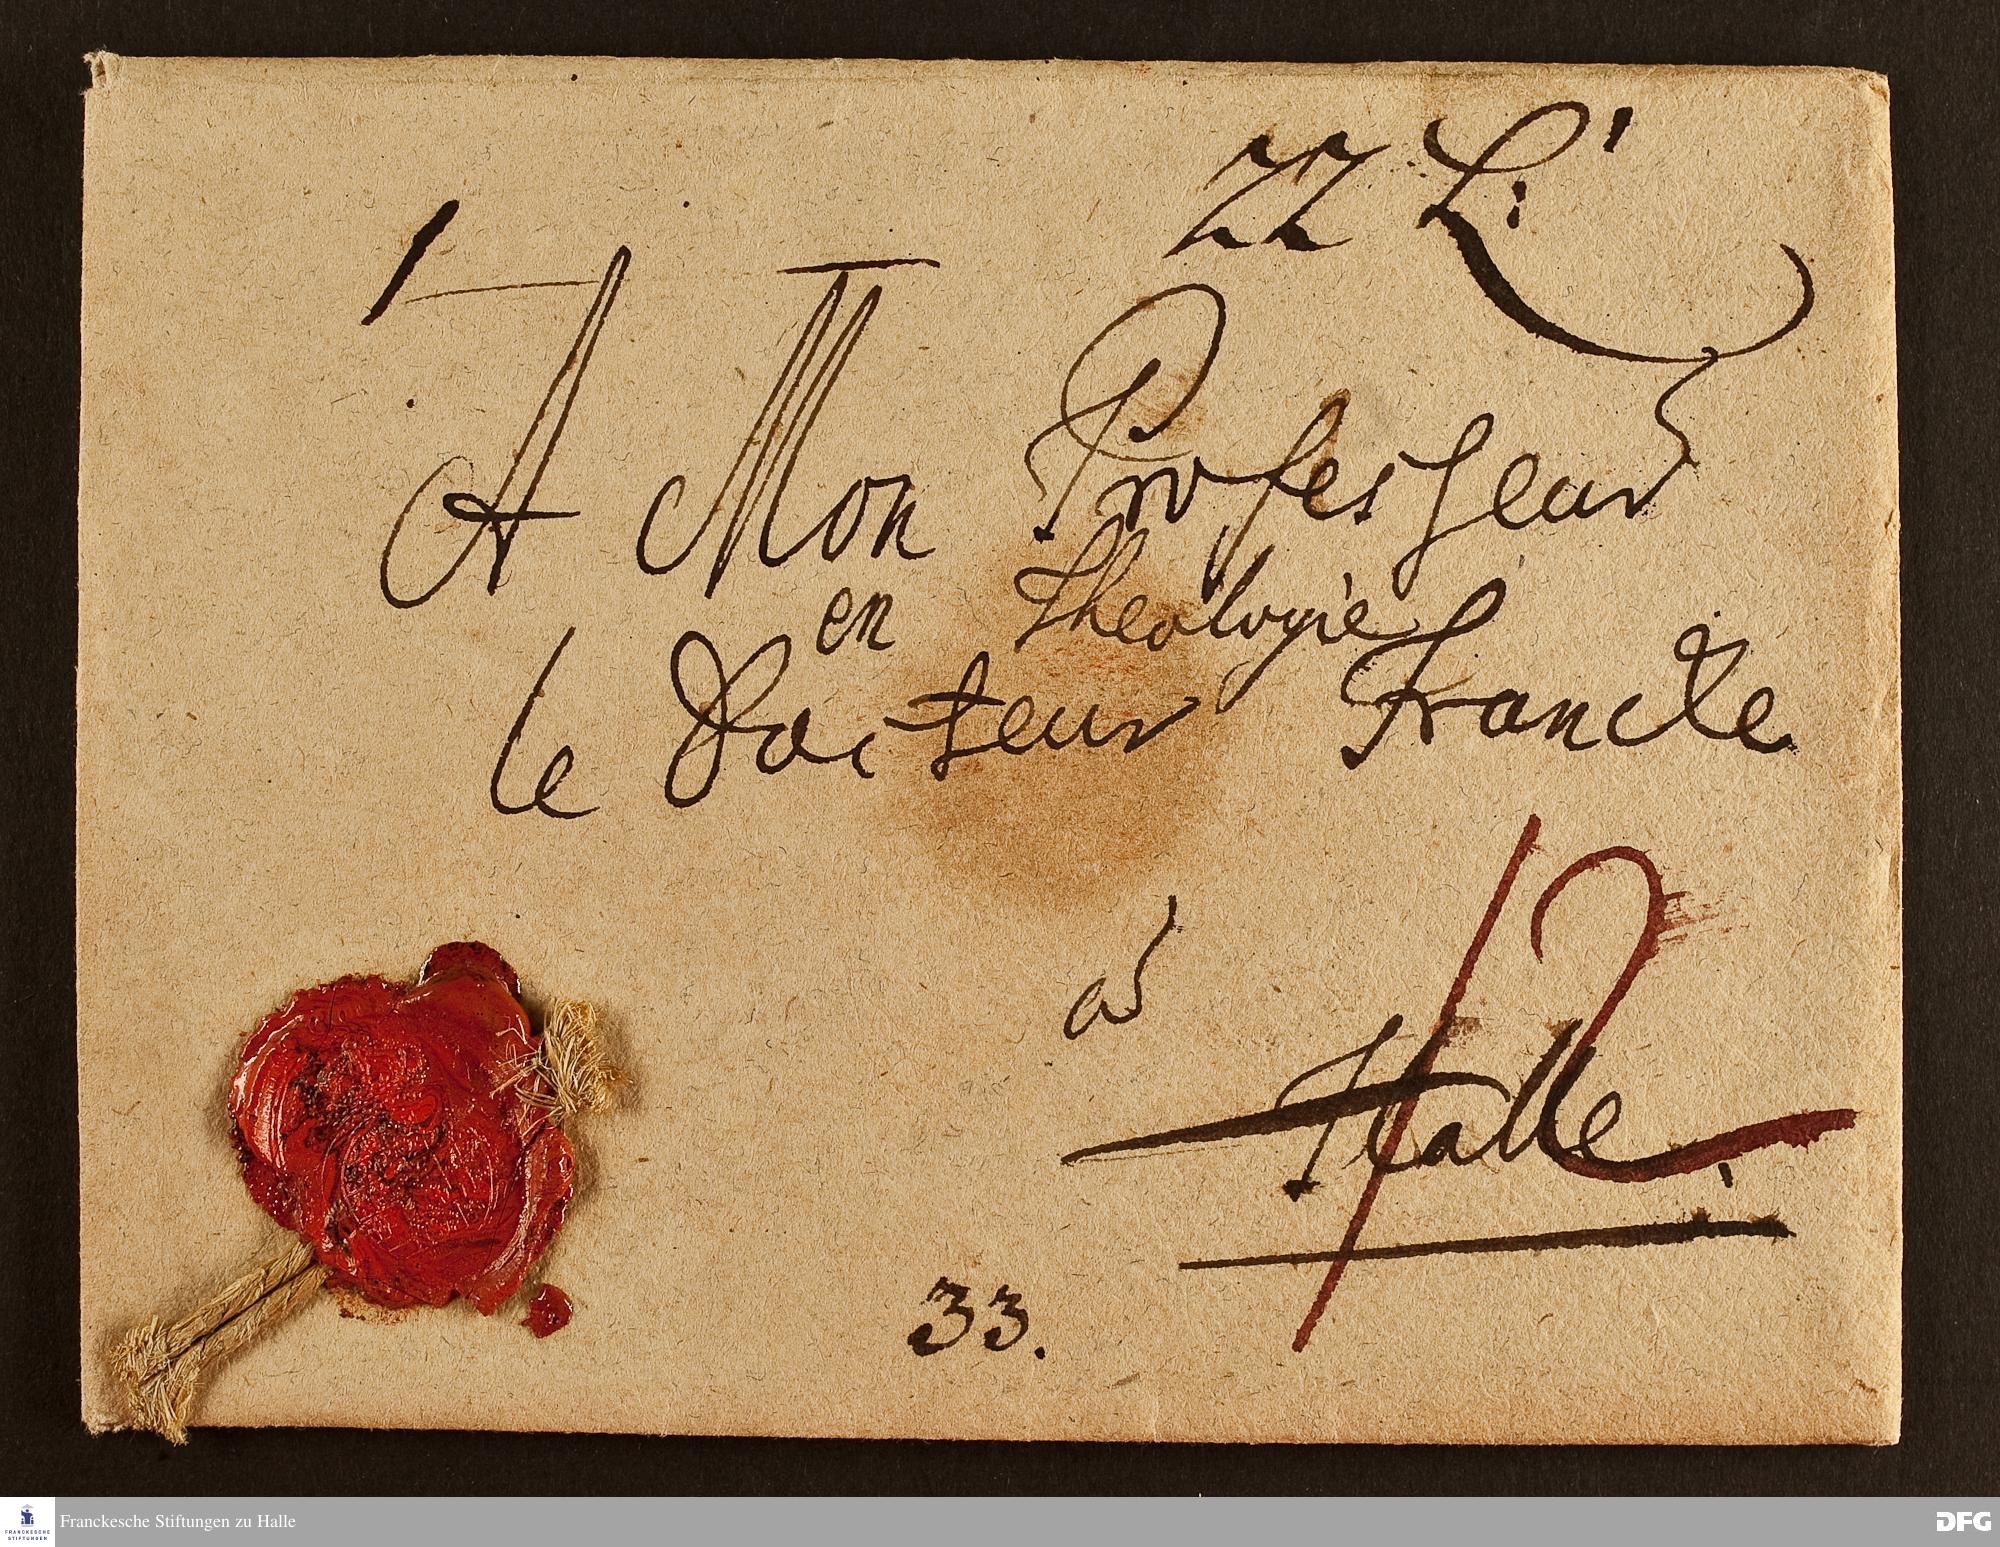 22 L:
A Mon Professeur
en Theologie
le Docteur Francke
a
Halle.
33.
Franckesche Stiftungen zu Halle
FRANCKESCHE
STIFTUNGEN
DFG